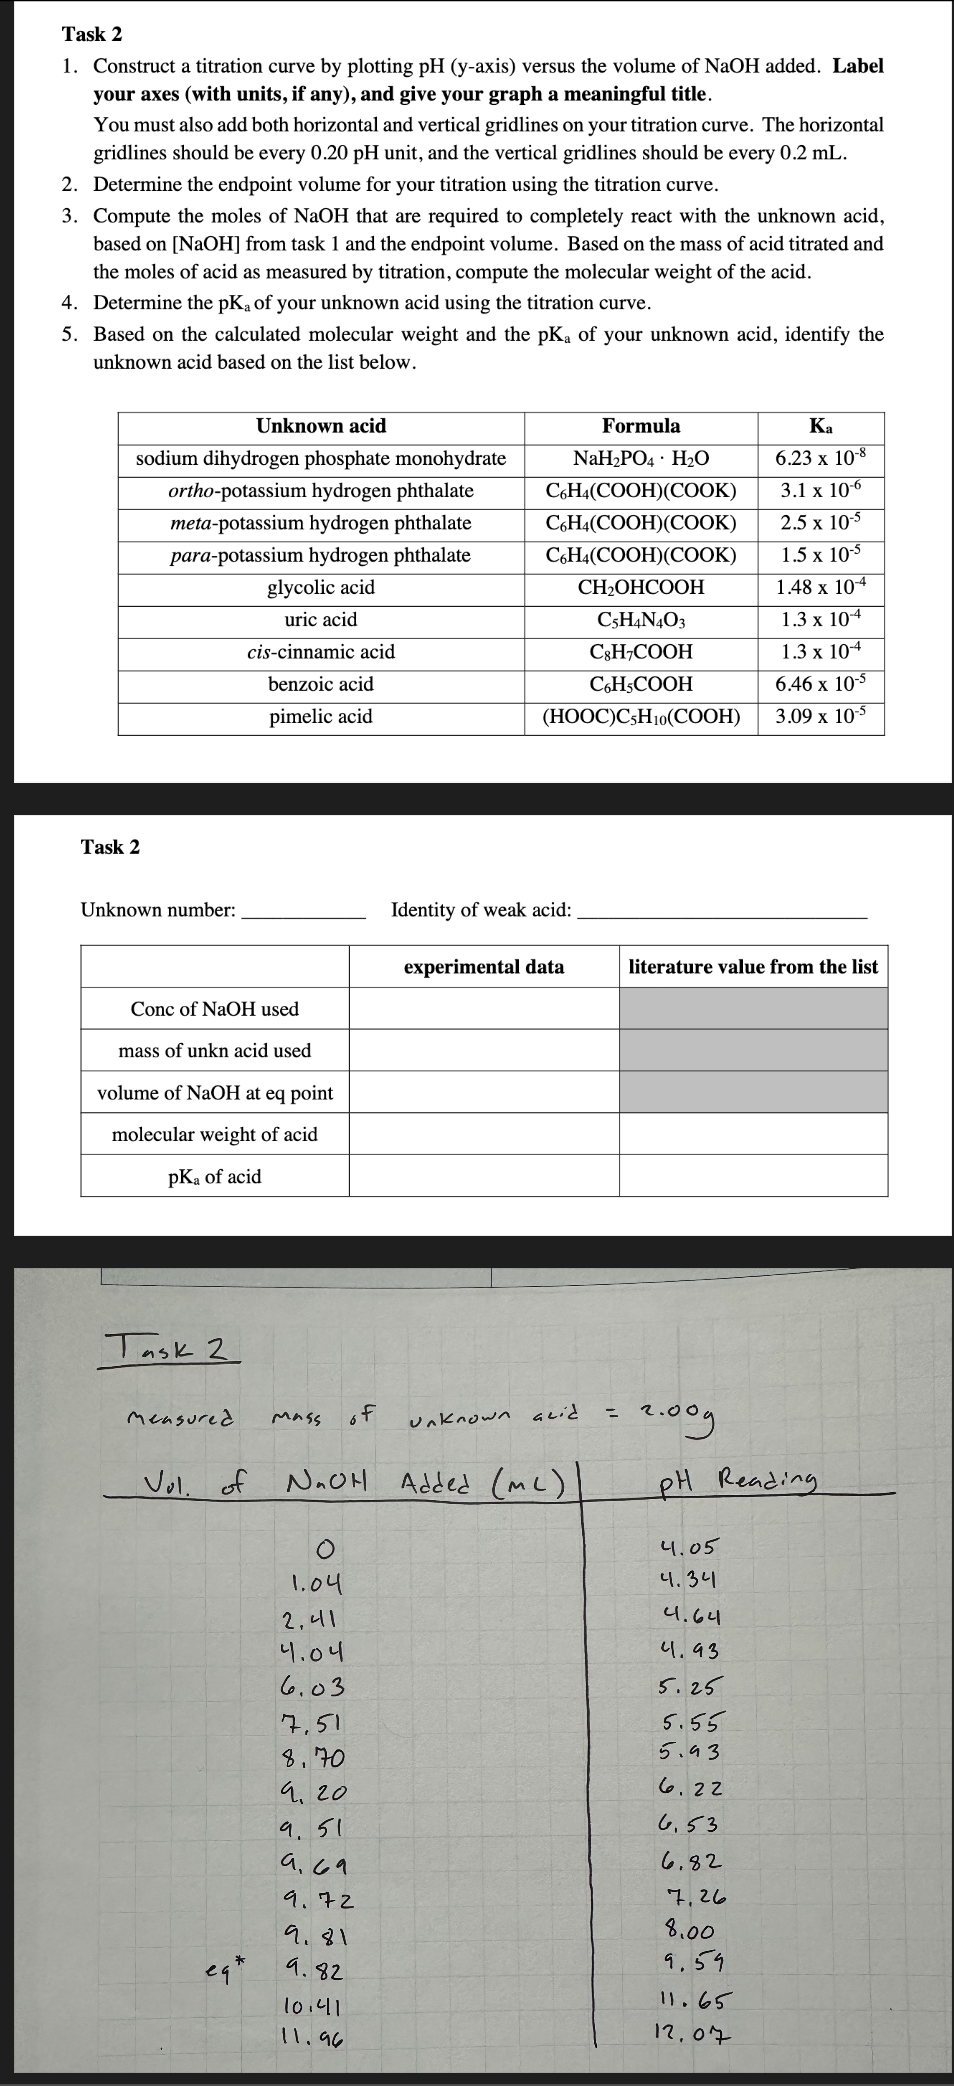 Task 2
1. Construct a titration curve by plotting pH (y-axis) versus the volume of NaOH added. Label
your axes (with units, if any), and give your graph a meaningful title.
You must also add both horizontal and vertical gridlines on your titration curve. The horizontal
gridlines should be every 0.20 pH unit, and the vertical gridlines should be every 0.2 mL.
2. Determine the endpoint volume for your titration using the titration curve.
3. Compute the moles of NaOH that are required to completely react with the unknown acid,
based on [NaOH] from task 1 and the endpoint volume. Based on the mass of acid titrated and
the moles of acid as measured by titration, compute the molecular weight of the acid.
4. Determine the pKa of your unknown acid using the titration curve.
5. Based on the calculated molecular weight and the pKa of your unknown acid, identify the
unknown acid based on the list below.
Unknown acid Formula Ka
sodium dihydrogen phosphate monohydrate NaH2PO4 · H2O 6.23 x 10-8
ortho-potassium hydrogen phthalate C6H4(COOH)(COOK) 3.1 x 10-6
meta-potassium hydrogen phthalate C6H4(COOH)(COOK) 2.5 x 10-5
para-potassium hydrogen phthalate C6H4(COOH)(COOK) 1.5 x 10-5
glycolic acid CH2OHCOOH 1.48 x 10-4
uric acid C5H4N4O3 1.3 x 10-4
cis-cinnamic acid C8H7COOH 1.3 x 10-4
benzoic acid C6H5COOH 6.46 x 10-5
pimelic acid (HOOC)C5H10(COOH) 3.09 x 10-5
Task 2
Unknown number: Identity of weak acid:
experimental data literature value from the list
Conc of NaOH used
mass of unkn acid used
volume of NaOH at eq point
molecular weight of acid
pKa of acid
Task 2
measured mass of unknown acid = 2.00g
Vol. of NaOH Added (mL) pH Reading
0 4.05
1.04 4.34
2.41 4.64
4.04 4.93
6.03 5.25
7.51 5.55
8.70 5.93
9.20 6.22
9.51 6.53
9.69 6.82
9.72 7.26
9.81 8.00
eq* 9.82 9.59
10.41 11.65
11.96 12.07